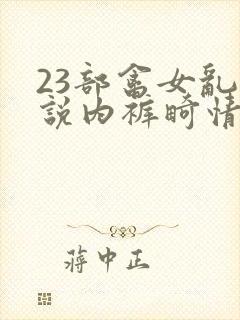 23部畜女乱
說内裤畸情
蒋中正